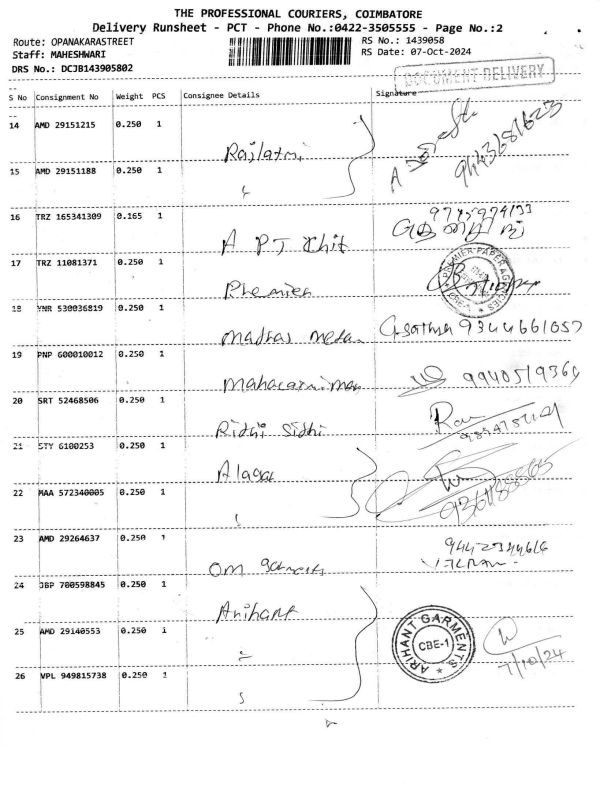 THE PROFESSIONAL COURIERS, COIMBATORE
Delivery Runsheet - PCT - Phone No.:0422-3505555 - Page No.:2
Route: OPANAKARASTREET
RS No.: 1439058
Staff: MAHESHWARI
RS Date: 07-Oct-2024
DRS No.: DCJB143905802
DOCUMENT DELIVERY
S No Consignment No Weight PCS Consignee Details Signature
14 AMD 29151215 0.250 1
Rajlaxmi
15 AMD 29151188 0.250 1
16 TRZ 165341309 0.165 1
A PT Chit
17 TRZ 11081371 0.250 1
Premier
PREMIER PAPER AGENCIES
18 YNR 530036819 0.250 1
madras metal 9344661057
19 PNP 600010012 0.250 1
9940519364
20 SRT 52468506 0.250 1
Ridhi Sidhi
21 STY 6100253 0.250 1
Alagar
22 MAA 572340005 0.250 1
23 AMD 29264637 0.250 1
Om
24 JBP 700598845 0.250 1
Arihant
25 AMD 29140553 0.250 1
ARIHANT GARMENTS
CBE-1
7/10/24
26 VPL 949815738 0.250 1